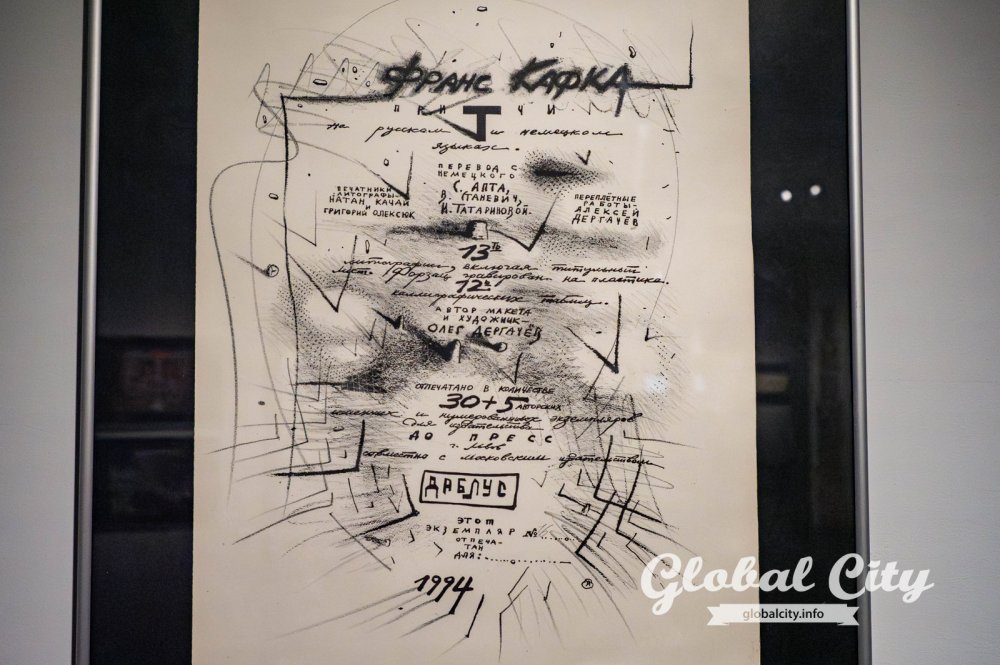 Франс Кафка
ПРИТЧИ
на русском и немецком
языках.
ПЕРЕВОД С
НЕМЕЦКОГО
С. АПТА,
В. СТАНЕВИЧ,
И. ТАТАРИНОВОЙ.
ПЕЧАТНИКИ
ЛИТОГРАФЫ-
НАТАН КАЧАЙ
И
ГРИГОРИЙ ОЛЕКСЮК
ПЕРЕПЛЁТНЫЕ
РАБОТЫ-
АЛЕКСЕЙ
ДЕРГАЧЁВ
13ть
литографий, включая титульный
лист. Форзац гравирован на пластике.
12ь
каллиграфических таблиц.
АВТОР МАКЕТА
И ХУДОЖНИК-
ОЛЕГ ДЕРГАЧЁВ
ОТПЕЧАТАНО В КОЛИЧЕСТВЕ
30+5 АВТОРСКИХ
именных и нумерованных экземпляров
для издательства
ДО ПРЕСС
г. Львов
совместно с московским издательством
ДАБЛУС
ЭТОТ
ЭКЗЕМПЛЯР №......
ОТПЕЧА-
ТАН
ДЛЯ:..............
1994
Global City
globalcity.info